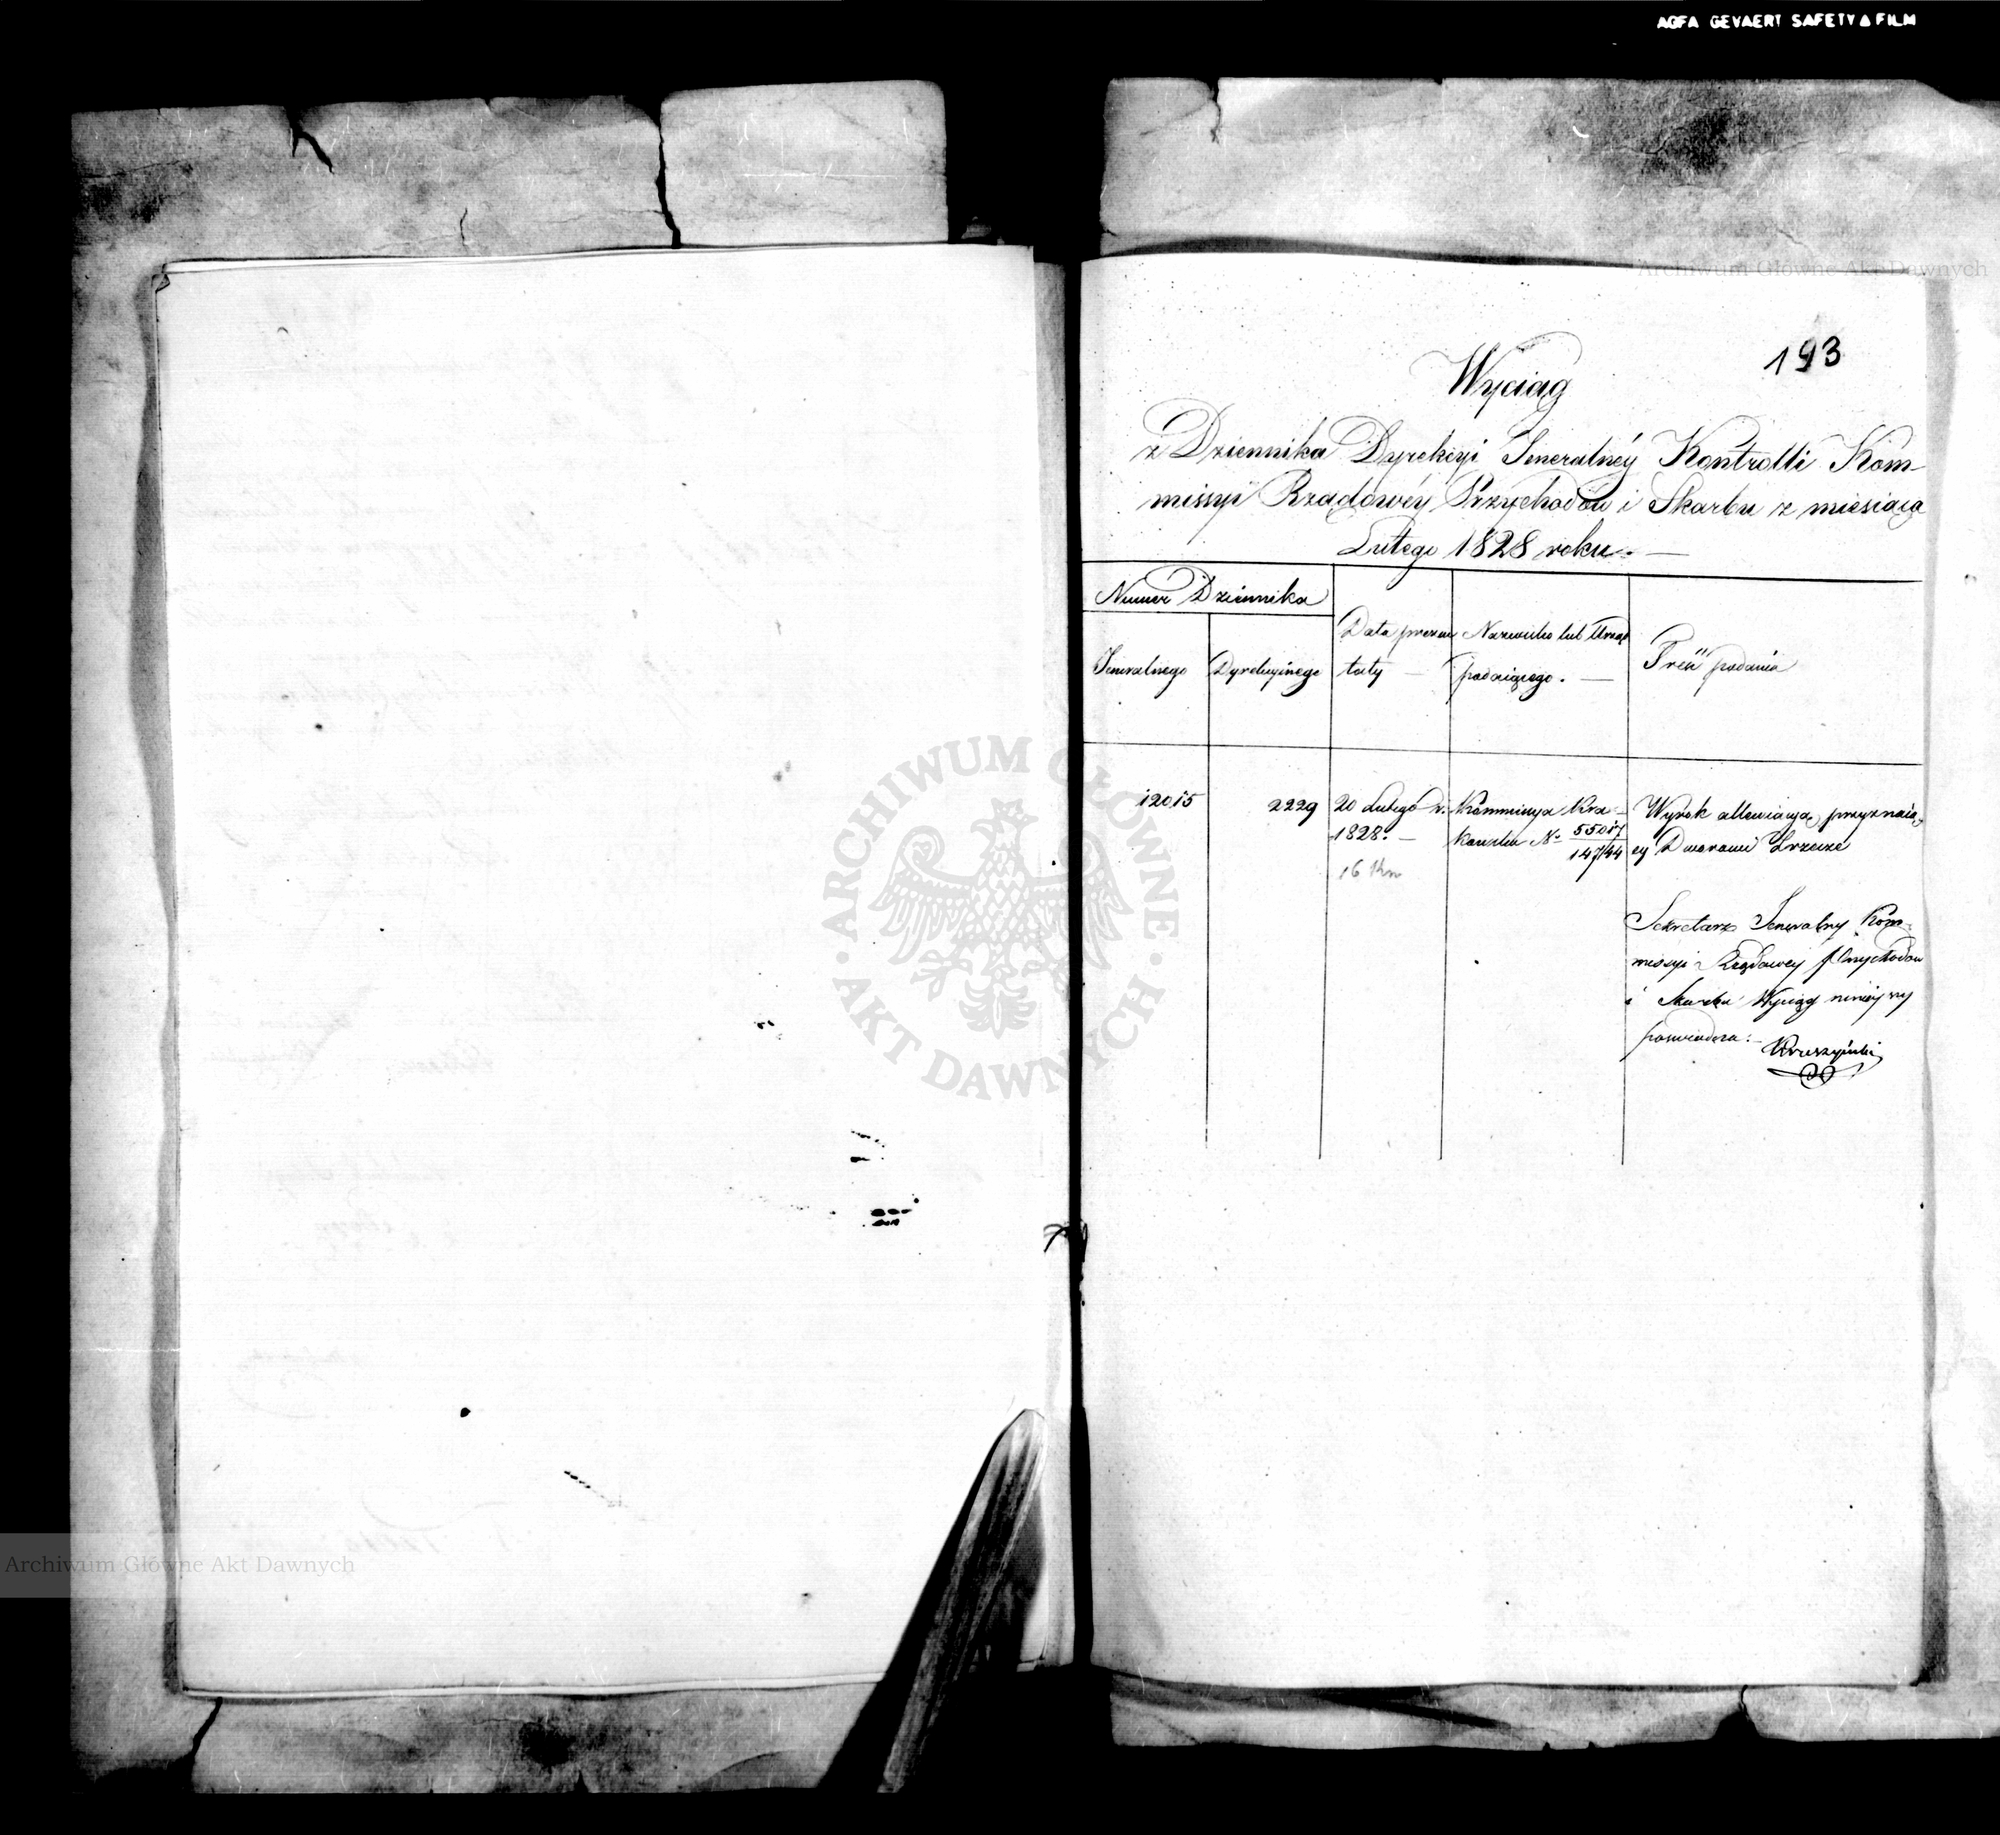 AGFA GEVAERT SAFETY FILM
Archiwum Główne Akt Dawnych
193
Wyciąg
z Dziennika Dyrekcyi Jeneralnéy Kontrolli Kom-
missyi Rządowéy Przychodów i Skarbu z miesiąca
Lutego 1828 roku. —
Numer Dziennika
Jeneralnego
Dyrekcyinego
Data prezen
taty —
Nazwisko lub Urząd
podaiącego. —
Treść podania
12015
2229
20 Lutego r.
1828. —
16
Kommissya Kra-
kowska No 55017
14744
Wyrok przyznaią-
cy
Sekretarz Jeneralny Kom-
missyi Rządowey Przychodów
i Skarbu Wyciąg ninieyszy
poświadcza. —
Kruszyński
ARCHIWUM GŁÓWNE AKT DAWNYCH
Archiwum Główne Akt Dawnych